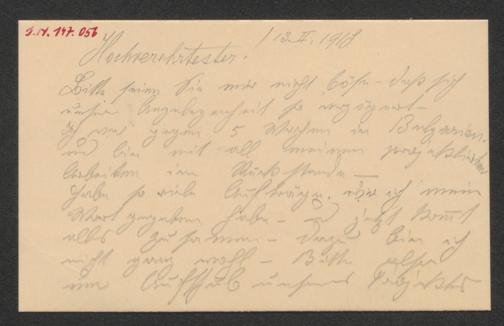 J.N. 147.056
13.II.1918
Hochverehrtester!
Bitte seien Sie mir nicht böse – daß sich
unsere Angelegenheit so verzögert –
Ich war gegen 5 Wochen in Bulgarien,
und bin mit all meinen projektierten
Arbeiten im Rückstande –
Habe so viele Aufträge, wo ich mein
Wort gegeben habe – und jetzt kommt
alles zusammen – Dazu bin ich
nicht ganz wohl – Bitte also
um Aufschub unseres Projektes